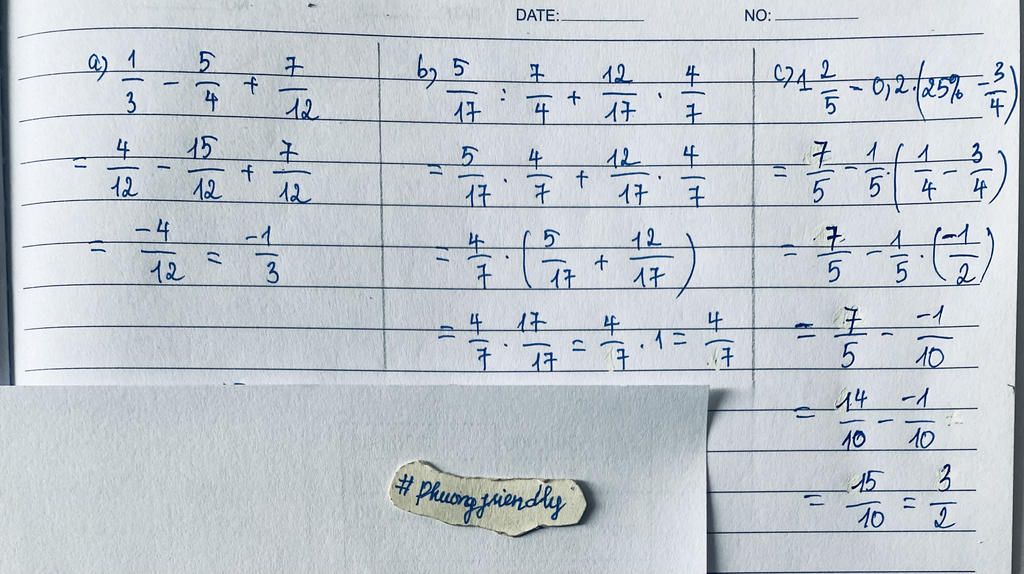 DATE: NO:
a) 1/3 - 5/4 + 7/12
= 4/12 - 15/12 + 7/12
= -4/12 = -1/3
b) 5/17 : 7/4 + 12/17 . 4/7
= 5/17 . 4/7 + 12/17 . 4/7
= 4/7 . (5/17 + 12/17)
= 4/7 . 17/17 = 4/7 . 1 = 4/7
c) 1 2/5 - 0,2 . (25% - 3/4)
= 7/5 - 1/5 . (1/4 - 3/4)
= 7/5 - 1/5 . (-1/2)
= 7/5 - -1/10
= 14/10 - -1/10
= 15/10 = 3/2
#phuongfriendly